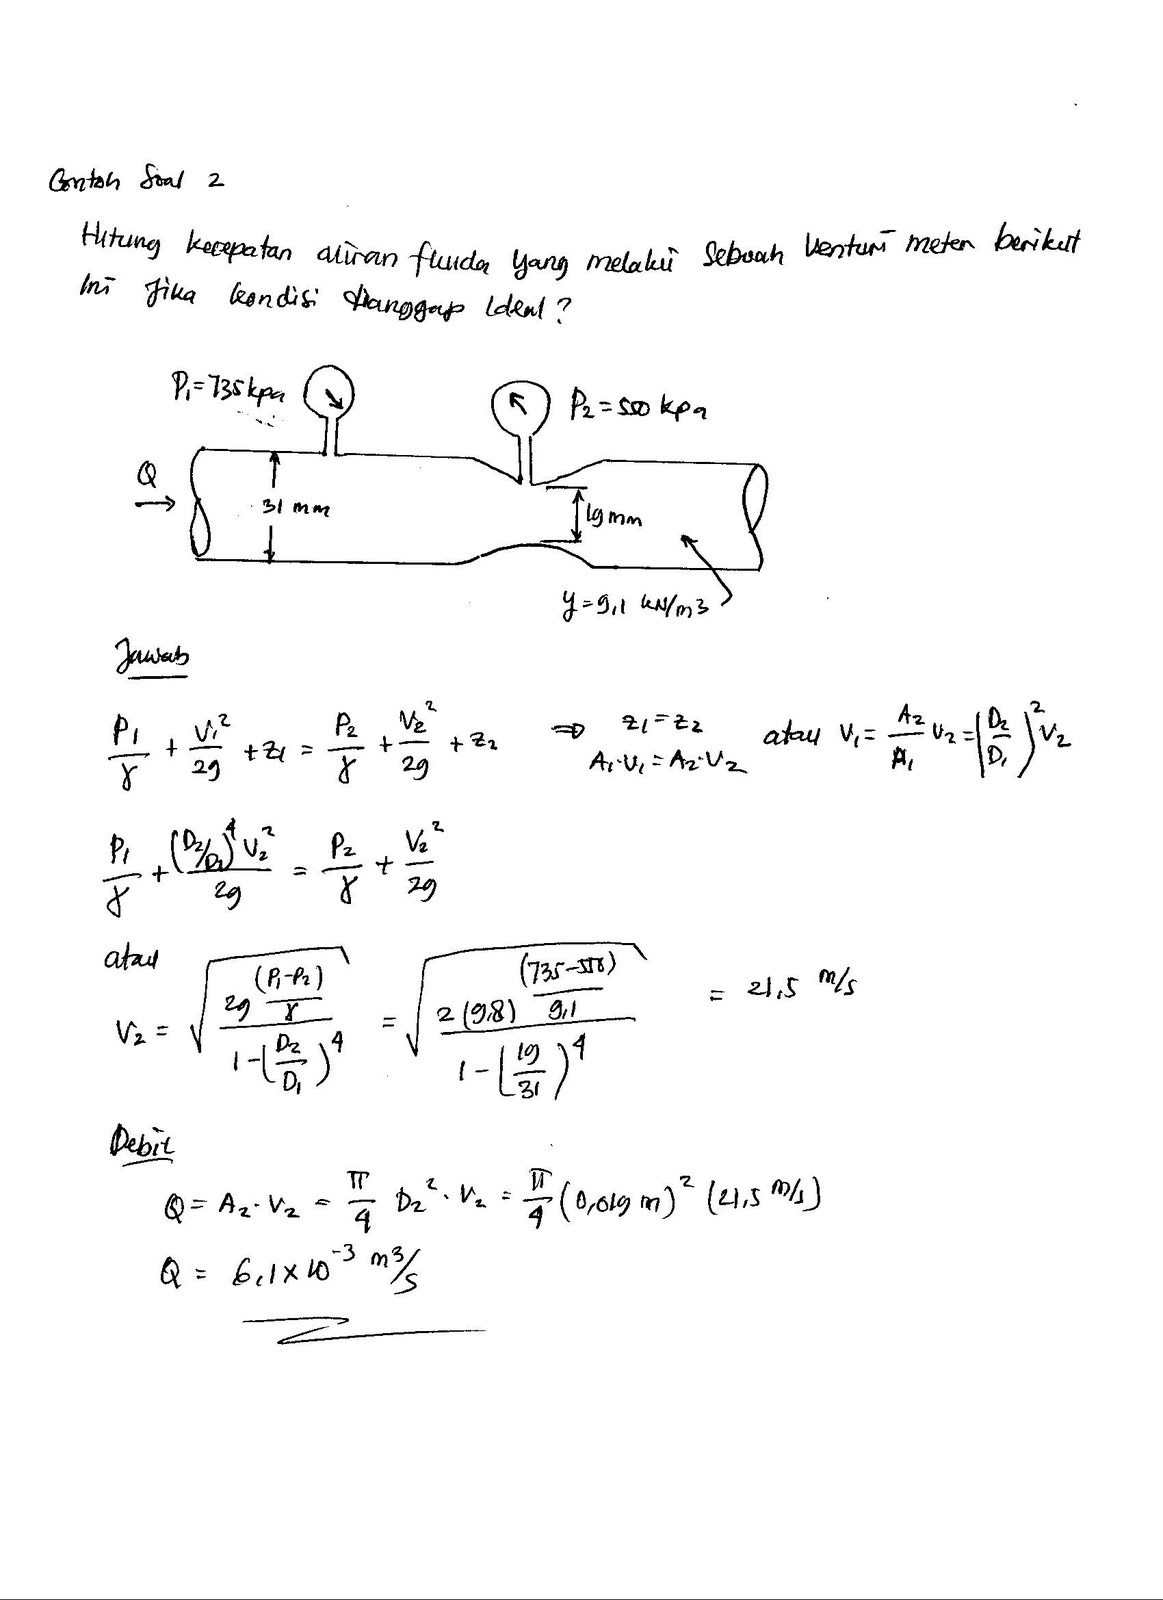 Contoh Soal 2
Hitung kecepatan aliran fluida yang melalui sebuah venturi meter berikut
ini jika kondisi dianggap ideal?
P₁=735 kpa
P₂=550 kpa
Q
31 mm
19 mm
γ=9,1 kN/m3
Jawab
P₁/γ + V₁²/2g + z₁ = P₂/γ + V₂²/2g + z₂ ⇒ z₁=z₂ A₁·V₁=A₂·V₂ atau V₁= A₂/A₁ V₂=(D₂/D₁)² V₂
P₁/γ + (D₂/D₁)⁴ V₂²/2g = P₂/γ + V₂²/2g
atau
V₂ = √(2g (P₁-P₂)/γ / 1-(D₂/D₁)⁴) = √(2(9.8) (735-550)/9,1 / 1-(19/31)⁴) = 21,5 m/s
Debit
Q = A₂·V₂ = π/4 D₂²·V₂ = π/4 (0,019 m)² (21,5 m/s)
Q = 6,1×10⁻³ m³/s